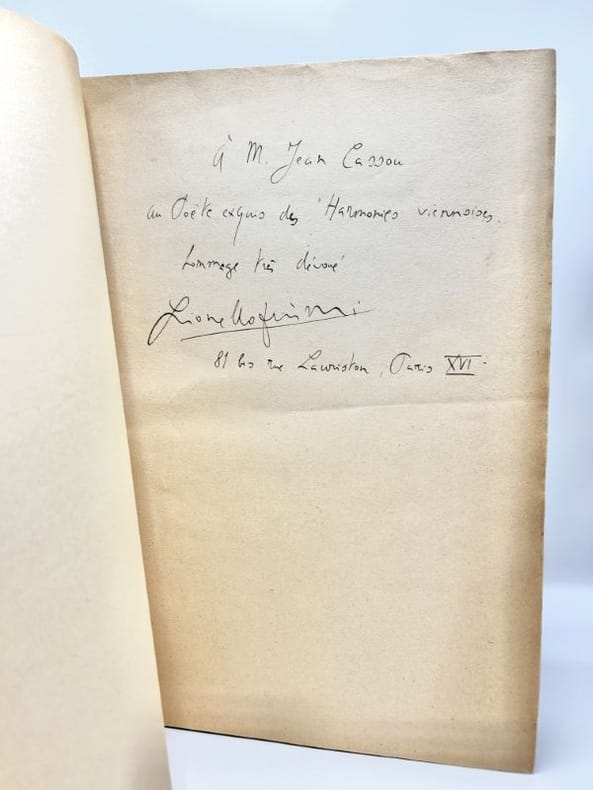 À M. Jean Cassou
au Poëte exquis des "Harmonies viennoises
hommage très dévoué
Lionello Fiumi
81 bis rue Lauriston, Paris XVI